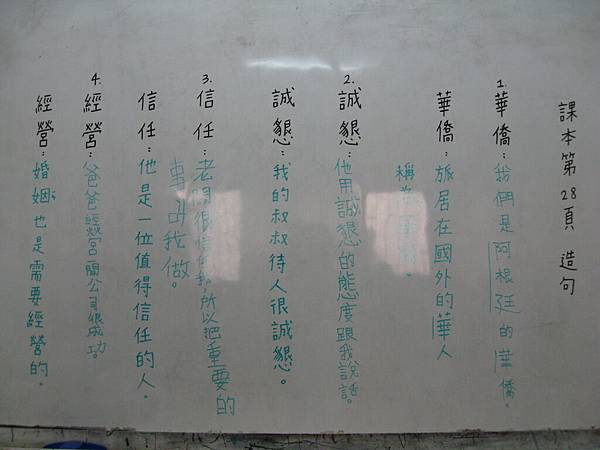 課本第28頁 造句
1. 華僑：我們是阿根廷的華僑。
華僑：旅居在國外的華人
稱為華僑。
2. 誠懇：他用誠懇的態度跟我說話。
誠懇：我的叔叔待人很誠懇。
3. 信任：老闆很信任我，所以把重要的
事叫我做。
信任：他是一位值得信任的人。
4. 經營：爸爸經營一間公司很成功。
經營：婚姻也是需要經營的。